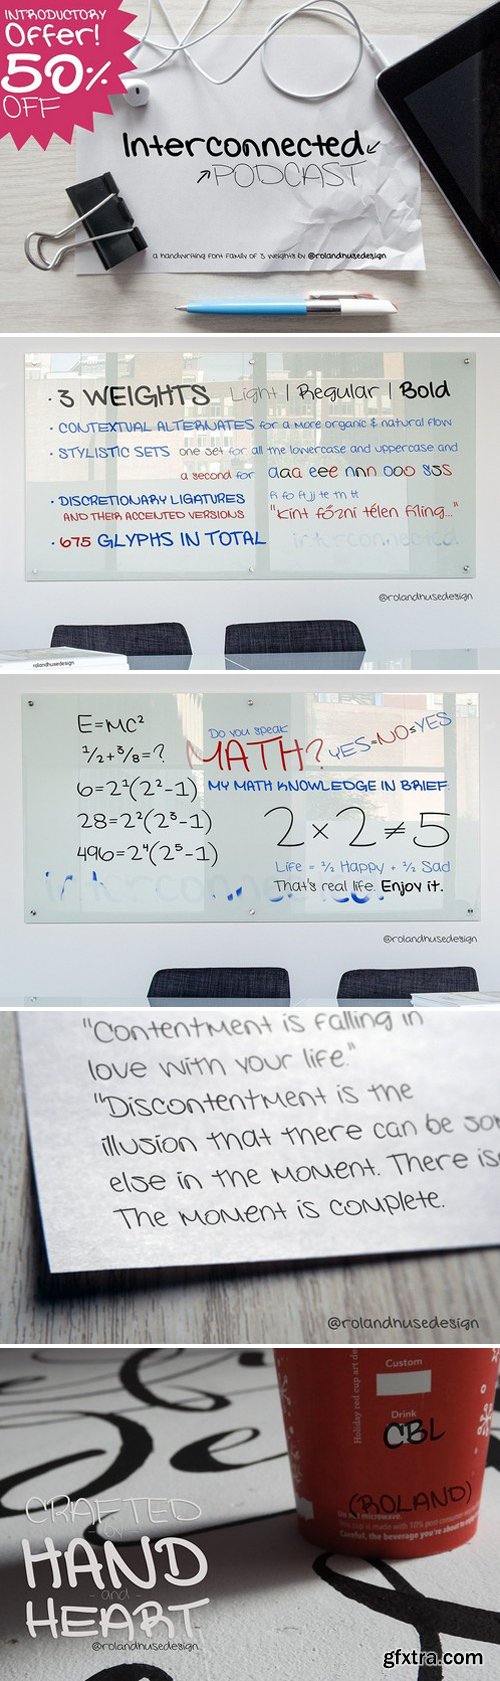 INTRODUCTORY
Offer!
50%
OFF
Interconnected
PODCAST
a handwriting font family of 3 weights by @rolandhusedesign
• 3 WEIGHTS Light | Regular | Bold
• CONTEXTUAL ALTERNATES for a more organic & natural flow
• STYLISTIC SETS one set for all the lowercase and uppercase and
a second for aaa eee nnn ooo sss
• DISCRETIONARY LIGATURES fi fo ft jj te th tt
AND THEIR ACCENTED VERSIONS "Kint főzni télen filing..."
• 675 GLYPHS IN TOTAL interconnected
@rolandhusedesign
rolandhusedesign
E=mc²
½+⅜=?
6=2¹(2²-1)
28=2²(2³-1)
496=2⁴(2⁵-1)
Do you speak
MATH? YES=NO≤YES
MY MATH KNOWLEDGE IN BRIEF:
2×2≠5
Life = ½ Happy + ½ Sad
That's real life. Enjoy it.
@rolandhusedesign
"Contentment is falling in
love with your life."
"Discontentment is the
illusion that there can be som
else in the moment. There is
The moment is complete.
@rolandhusedesign
Custom
Drink
CBL
(ROLAND)
Holiday red cup art de
Do not microwave.
This cup is made with 10% post consumer
Careful, the beverage you're about to enjo
CRAFTED
- by -
HAND
- and -
HEART
@rolandhusedesign
gfxtra.com